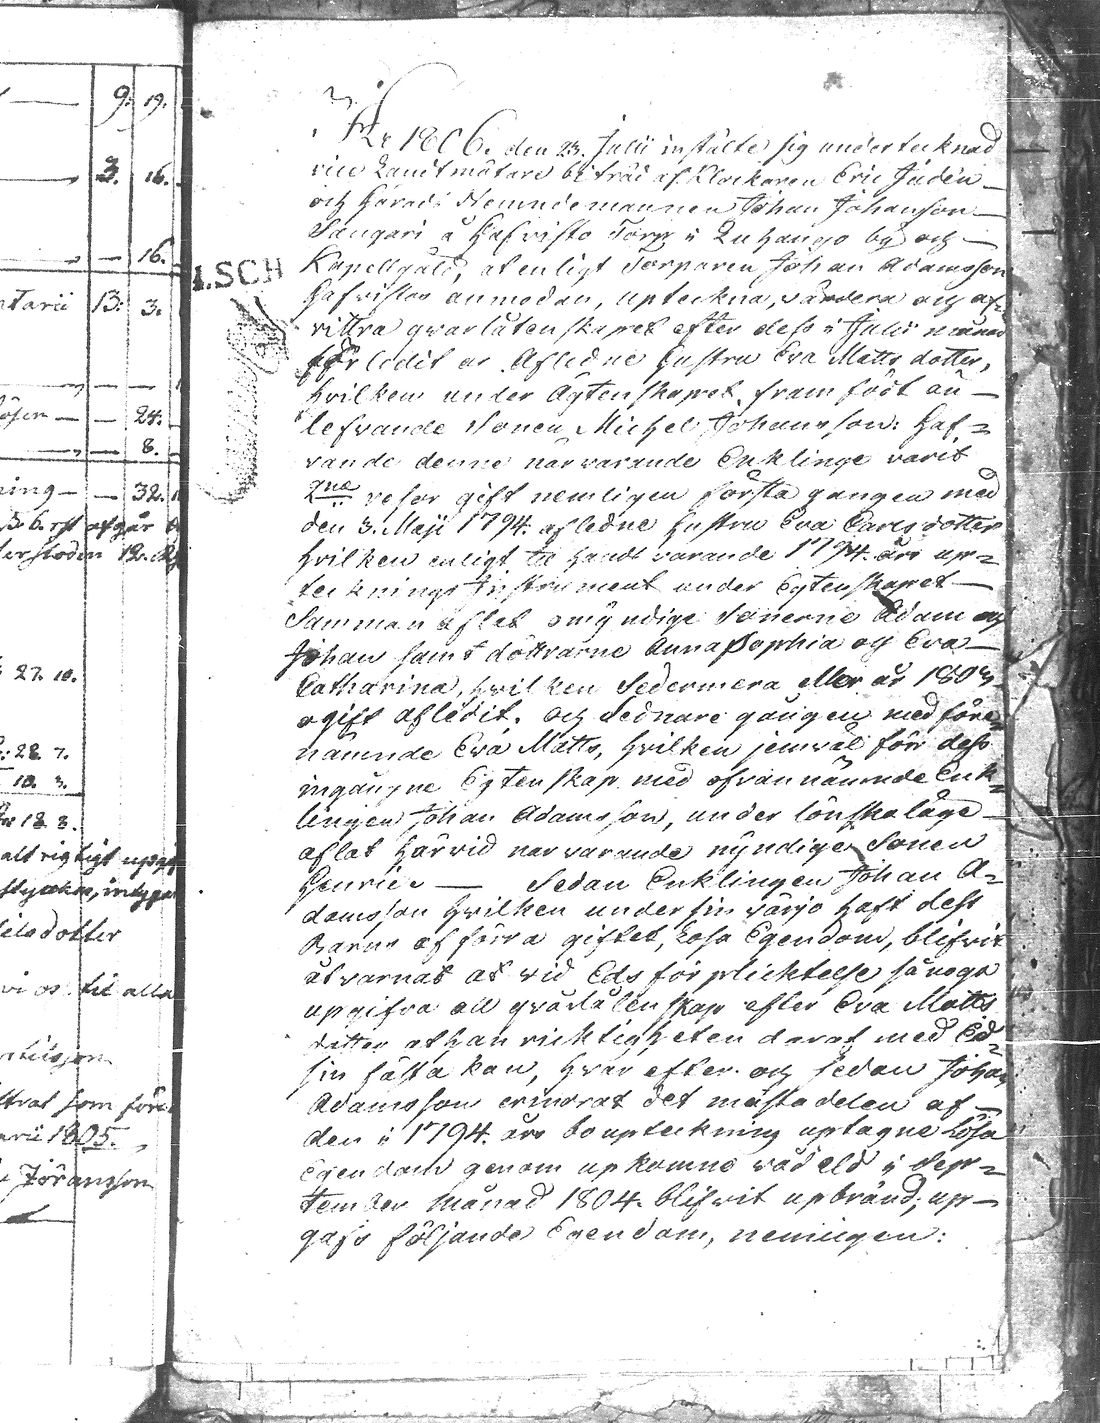 9: 19.
3. 16.
16.
ntarii 13: 3.
24.
8.
ning 32.
27. 10.
: 28. 7.
10. 3.
18 8.
alt rigtigt
dotter
til alla
som före
1805.
Jöransson
I.SCH
År 1806. den 23. Julii instälte sig undertecknad
vice Landtmätare biträd af Klockaren Eric Judén
och Härads Nemndemannen Johan Johansson
Sangari å Hafvisto Torp i Luhango by och
Kapellgäld, at enligt Torparen Johan Adamsson
Hafvistos anmodan, upteckna, värdera och af-
vittra qvarlåtenskapet efter dess i Julii månad
förledit år Afledne Hustru Eva Matts dotter,
hvilken under Ägtenskapet framfödt än
lefvande Sonen Michel Johansson: Haf-
vande denne närvarande Enklinge varit
2ne resor gift nemligen första gången med
den 3. Maji 1794. afledne Hustru Eva Carlsdotter
hvilken enligt til hands varande 1794. års up-
tecknings Instrument under Egtenskapet
Samman aflat omyndige Sönerne Adam och
Johan samt döttrarne Anna Sophia och Eva
Catharina, hvilken Sedermera år 1803
ogift afledit, och Sednare gången med före-
nämnde Eva Matts, hvilken jemväl för dess
ingångne Egtenskap med ofvannämnde Enk-
lingen Johan Adamsson, under lönskaläge
aflat härvid närvarande myndige Sonen
Henric. — Sedan Enklingen Johan A-
damsson hvilken under sin värjo haft dess
Barns af förra giftet, Lösa Egendom, blifvit
åtvarnat at vid Eds förplicktelse så noga
upgifva all qvarlåtenskap efter Eva Matts
dotter at han ricktigheten deraf med Ed
sin fästa kan, hvarefter och sedan Johan
Adamsson erindrat det mästa delen af
den i 1794. års bouptekning uptagne Lösa
Egendom genom upkommo våd eld i Sep-
tember Månad 1804. blifvit upbränd, up-
gafs följande Egendom, nemligen: